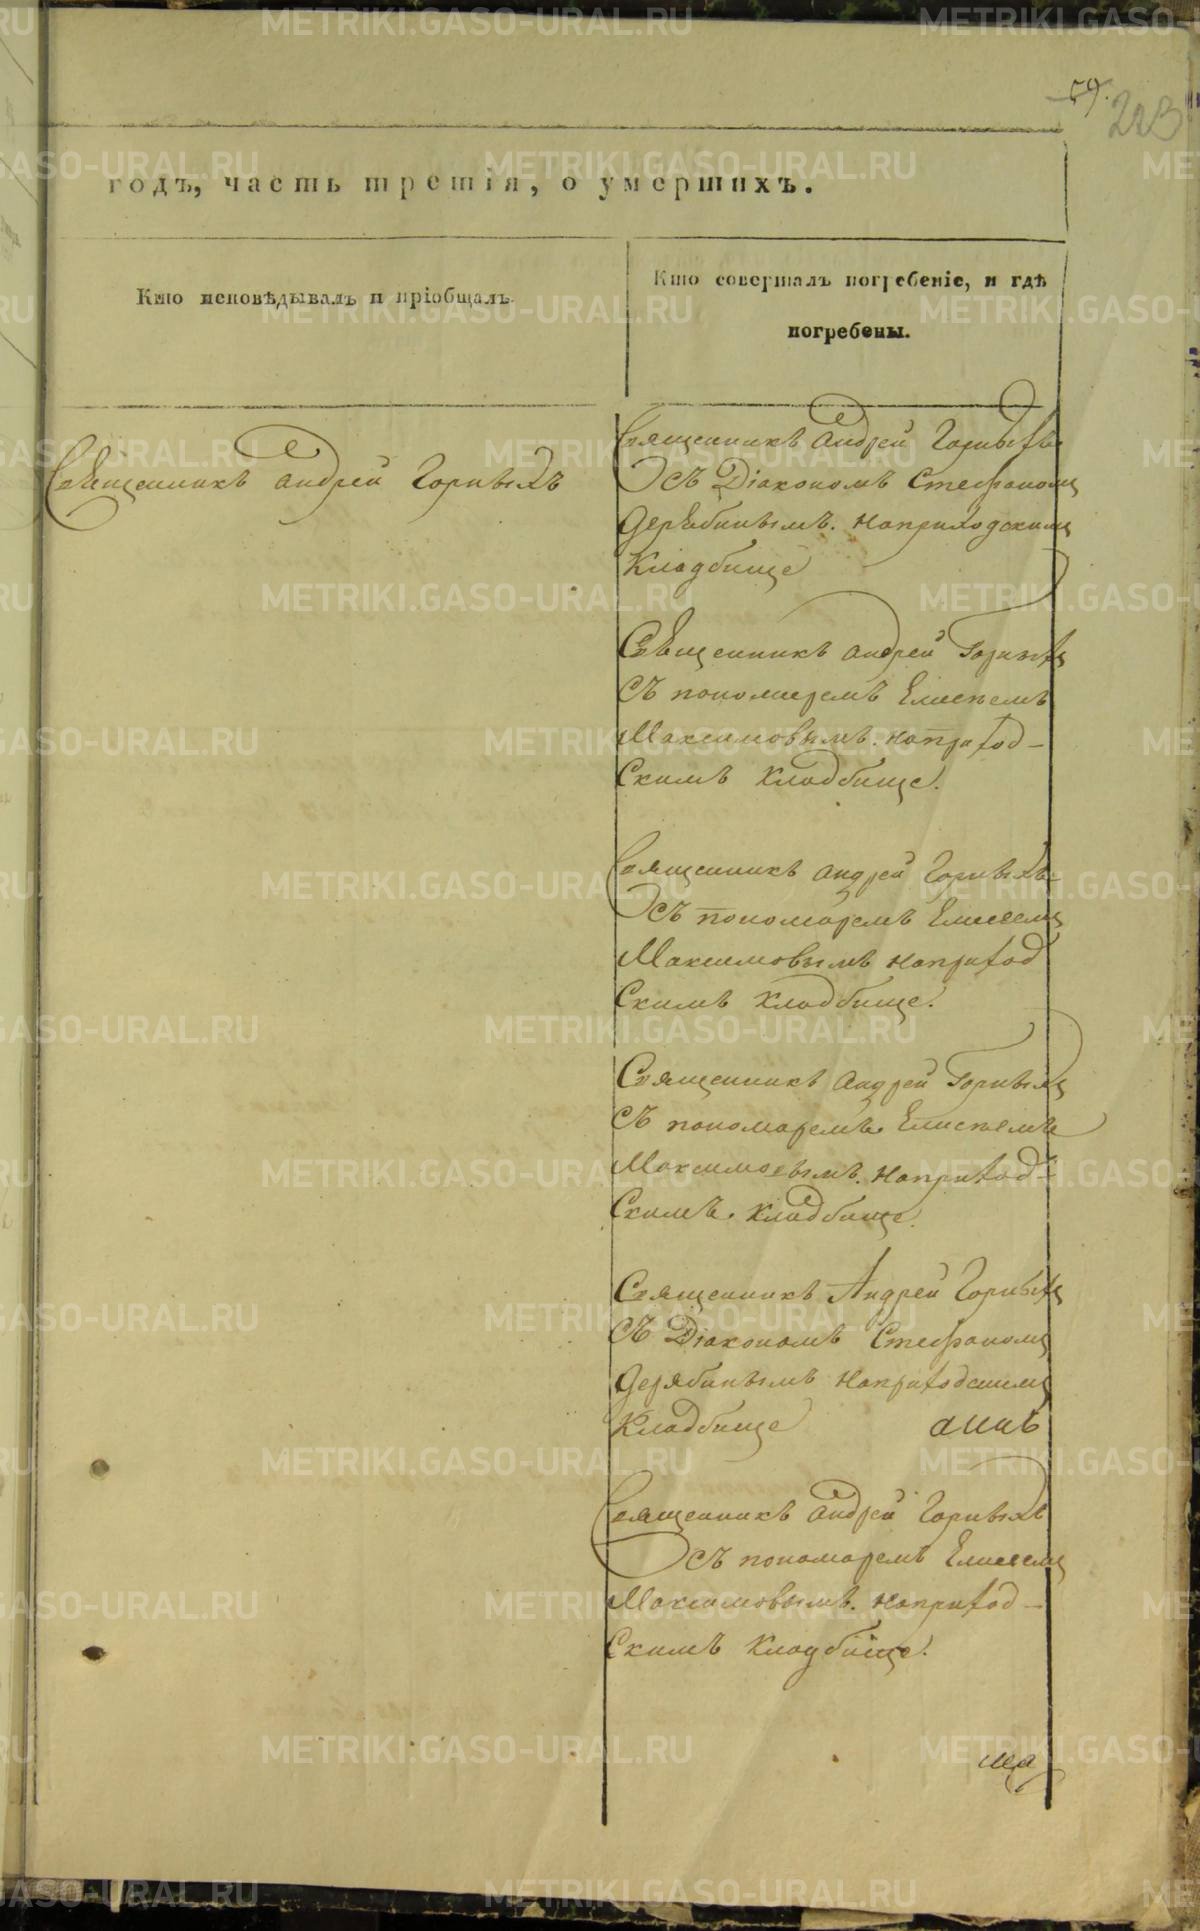 59.
223
годъ, часть третія, о умершихъ.
Кто исповѣдывалъ и пріобщалъ
Кто совершалъ погребеніе, и гдѣ
погребены.
Священникъ Андрей Горныхъ
Священникъ Андрей Горныхъ
съ Діакономъ Стефаномъ
Дерябинымъ. наприходскимъ
Кладбище
Священникъ Андрей Горныхъ
съ пономаремъ Елисѣемъ
Максимовымъ. наприход-
Скимъ Кладбище.
Священникъ Андрей Горныхъ
съ пономаремъ Елисеемъ
Максимовымъ наприход
Скимъ Кладбище.
Священникъ Андрей Горныхъ
съ пономаремъ Елисѣемъ
Максимовымъ. наприход-
Скимъ. Кладбище.
Священникъ Андрей Горныхъ
съ Діакономъ Стефаномъ
Дерябинымъ наприходскимъ
Кладбище
Священникъ Андрей Горныхъ
съ пономаремъ Елисеемъ
Максимовымъ. наприход-
Скимъ Кладбище.
METRIKI.GASO-URAL.RU